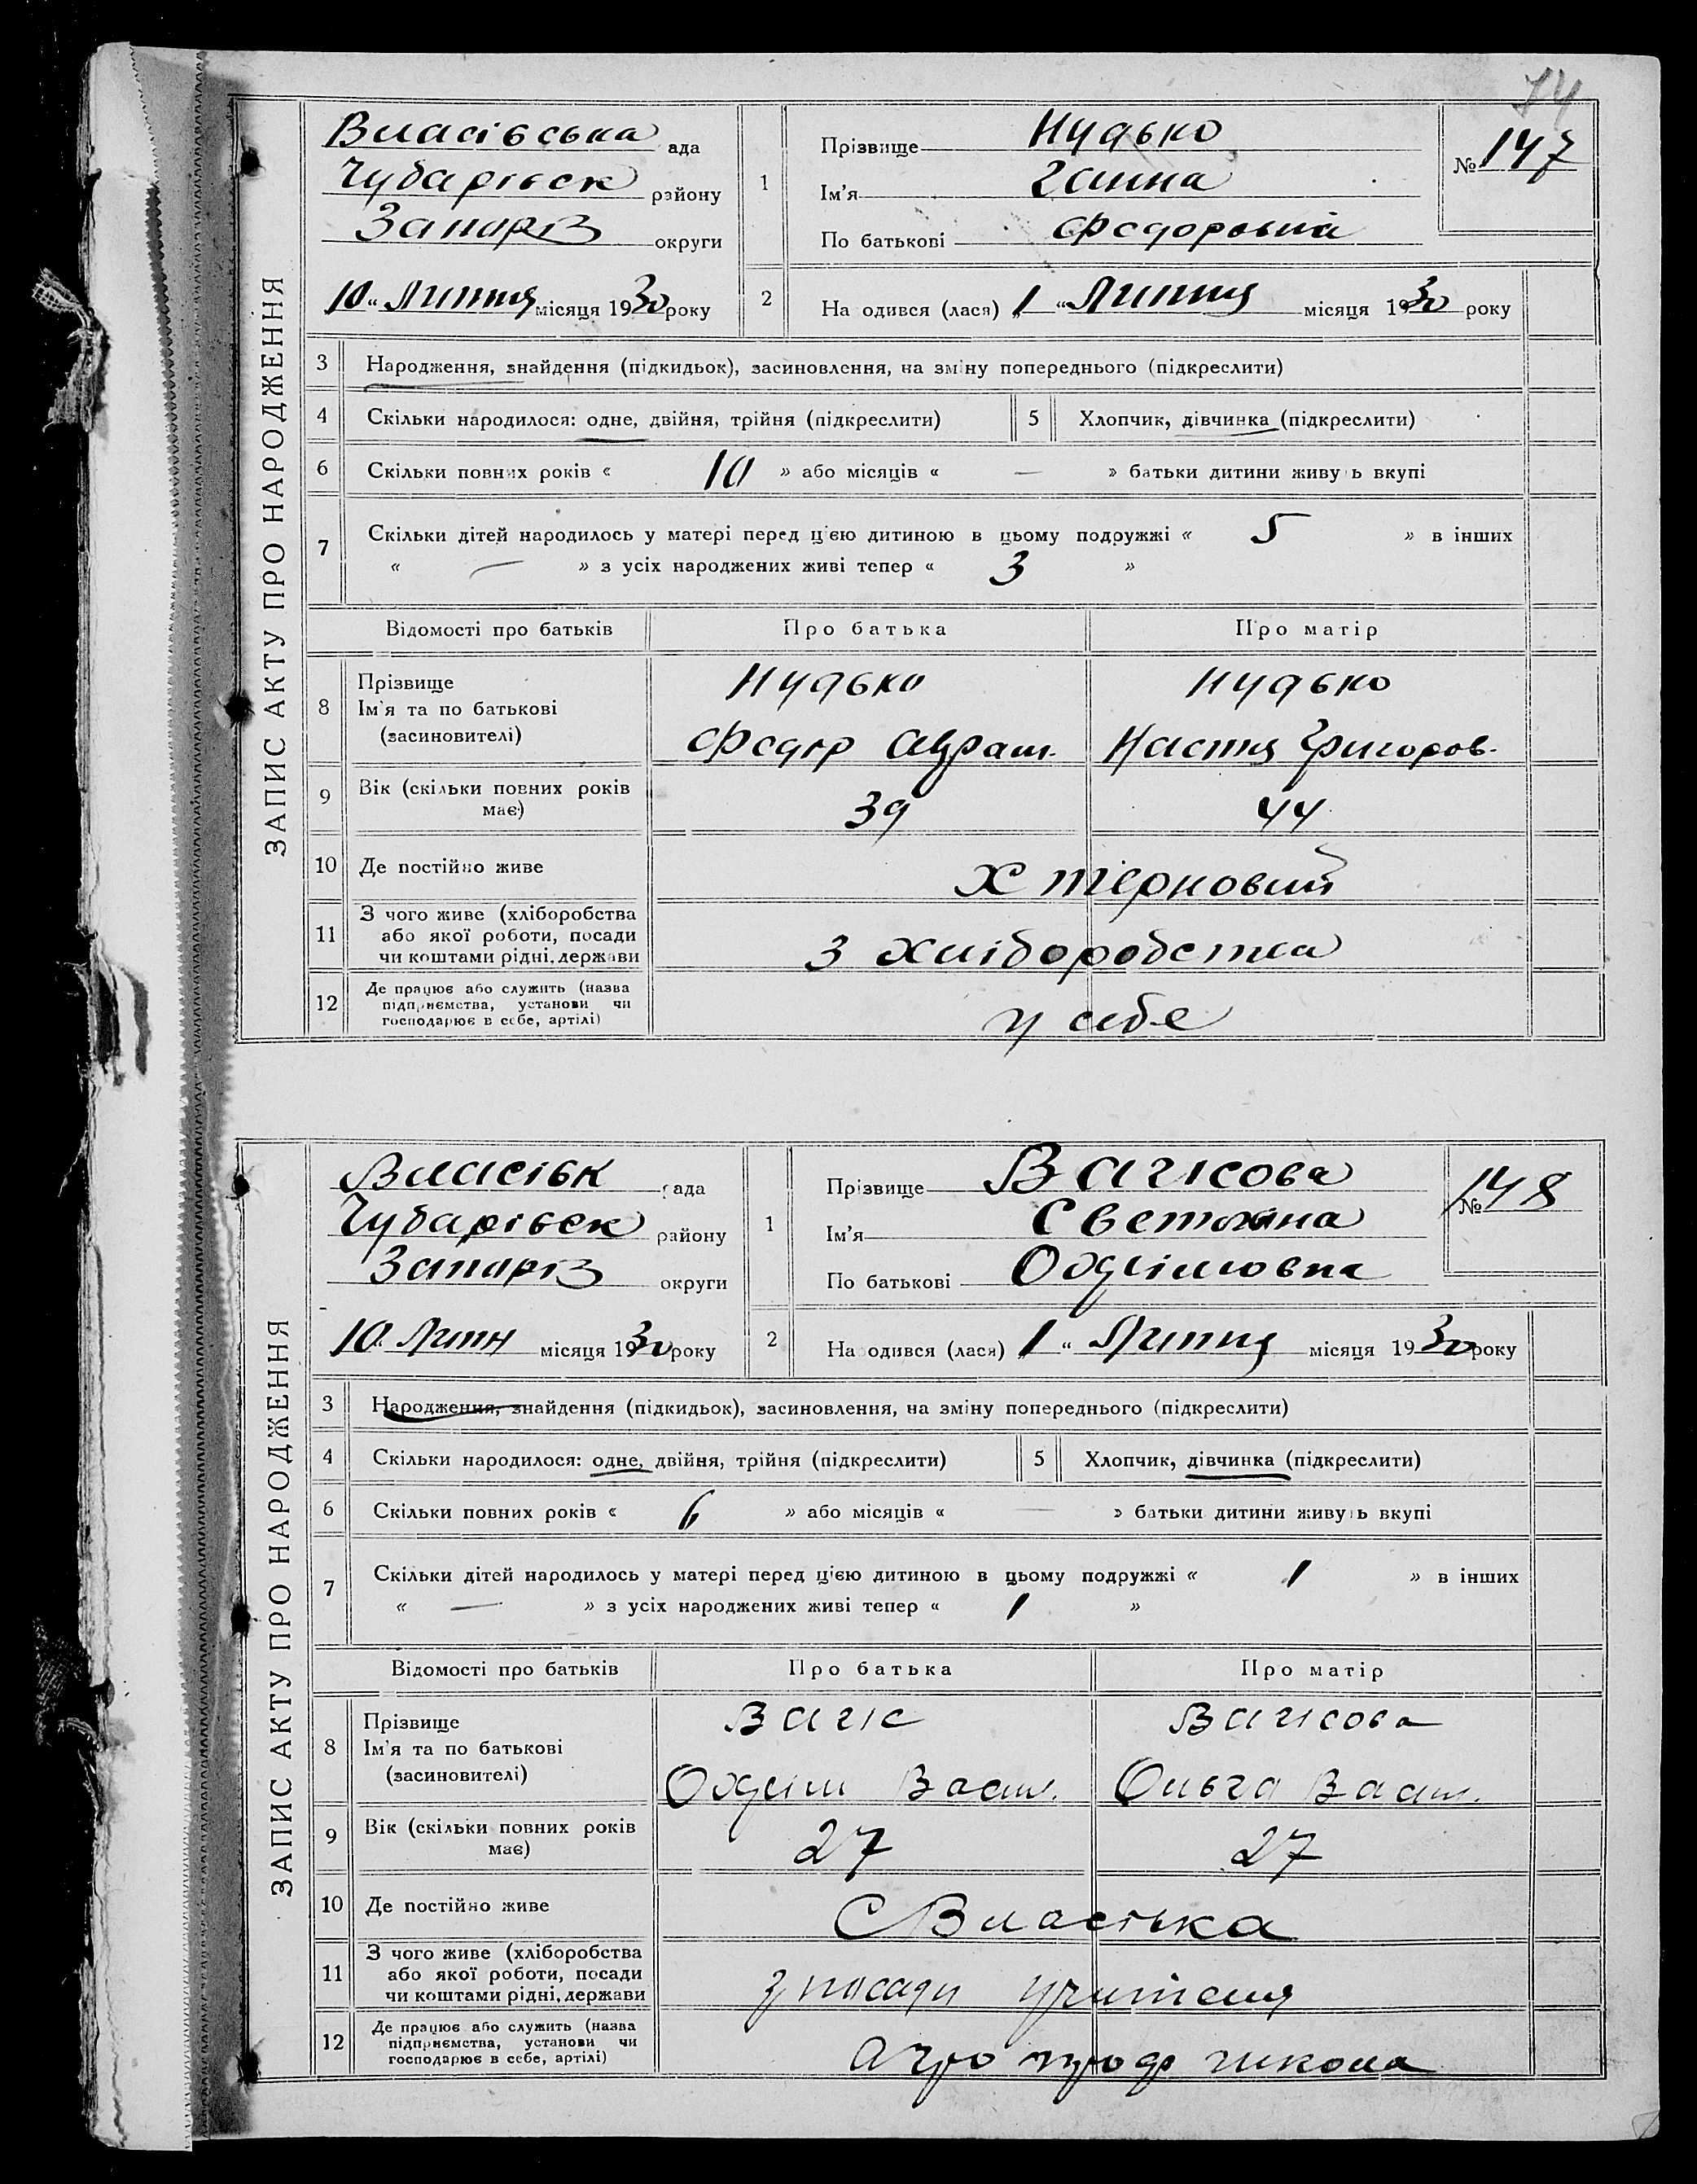 74
ЗАПИС АКТУ ПРО НАРОДЖЕННЯ
Власівська ада
Чубарівськ району
Запоріз округи
10 „ Липня місяця 1930 року
1 Прізвище Нудько
Ім'я Ганна
По батькові Федоровна
№ 147
2 На одився (лася) „1 “ Липня місяця 1930 року
3 Народження, знайдення (підкидьок), засиновлення, на зміну попереднього (підкреслити)
4 Скільки народилося: одне, двійня, трійня (підкреслити) 5 Хлопчик, дівчинка (підкреслити)
6 Скільки повних років « 10 » або місяців « — » батьки дитини живу ь вкупі
7 Скільки дітей народилось у матері перед ц'єю дитиною в цьому подружжі « 5 » в інших
« — » з усіх народжених живі тепер « 3 »
Відомості про батьків Про батька Про матір
8 Прізвище Нудько Нудько
Ім'я та по батькові
(засиновителі) Федір Аврам. Настя Григоров.
9 Вік (скільки повних років
має) 39 44
10 Де постійно живе х терновий
11 З чого живе (хліборобства
або якої роботи, посади
чи коштами рідні, держави з хліборобства
12 Де працює або служить (назва
підприємства, установи чи
господарює в себе, артілі) у себе
ЗАПИС АКТУ ПРО НАРОДЖЕННЯ
Власівк ада
Чубарівськ району
Запоріз округи
10 Липн місяця 1930 року
1 Прізвище Вагісова
Ім'я Светлана
По батькові Охрімовна
№ 148
2 На одився (лася) „1 “ Липня місяця 1930 року
3 Народження, знайдення (підкидьок), засиновлення, на зміну попереднього (підкреслити)
4 Скільки народилося: одне, двійня, трійня (підкреслити) 5 Хлопчик, дівчинка (підкреслити)
6 Скільки повних років « 6 » або місяців « — » батьки дитини живу ь вкупі
7 Скільки дітей народилось у матері перед ц'єю дитиною в цьому подружжі « 1 » в інших
« — » з усіх народжених живі тепер « 1 »
Відомості про батьків Про батька Про матір
8 Прізвище Вагіс Вагісова
Ім'я та по батькові
(засиновителі) Охрім Васил. Ольга Васил.
9 Вік (скільки повних років
має) 27 27
10 Де постійно живе С Власівка
11 З чого живе (хліборобства
або якої роботи, посади
чи коштами рідні, держави з посади учителя
12 Де працює або служить (назва
підприємства, установи чи
господарює в себе, артілі) Агро проф школа